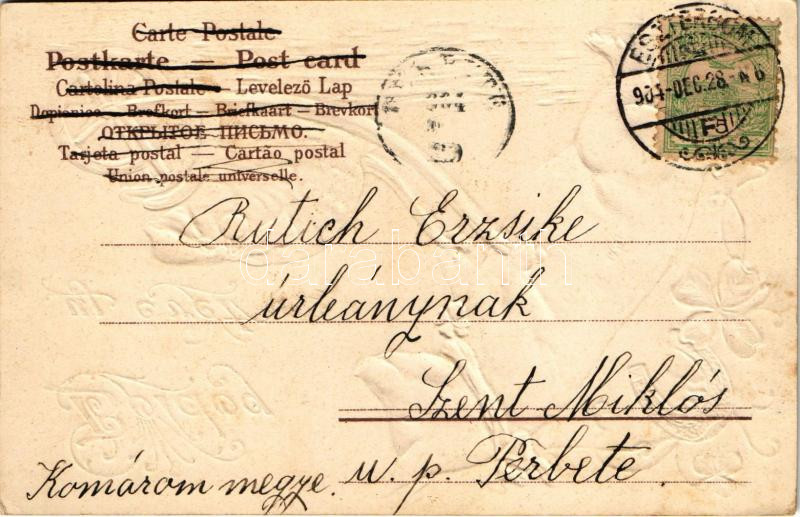 Carte Postale
Postkarte — Post card
Cartolina Postale — Levelező Lap
Dopisnice — Brefkort — Briefkaart — Brevkort
ОТКРЫТОЕ ПИСЬМО.
Tarjeta postal — Cartão postal
Union postale universelle.
ESZTERGOM
904-DEC.28.
Erzsike
darabanth
úrleánynak
Szent Miklós
u. p. Perbete.
Komárom megye.